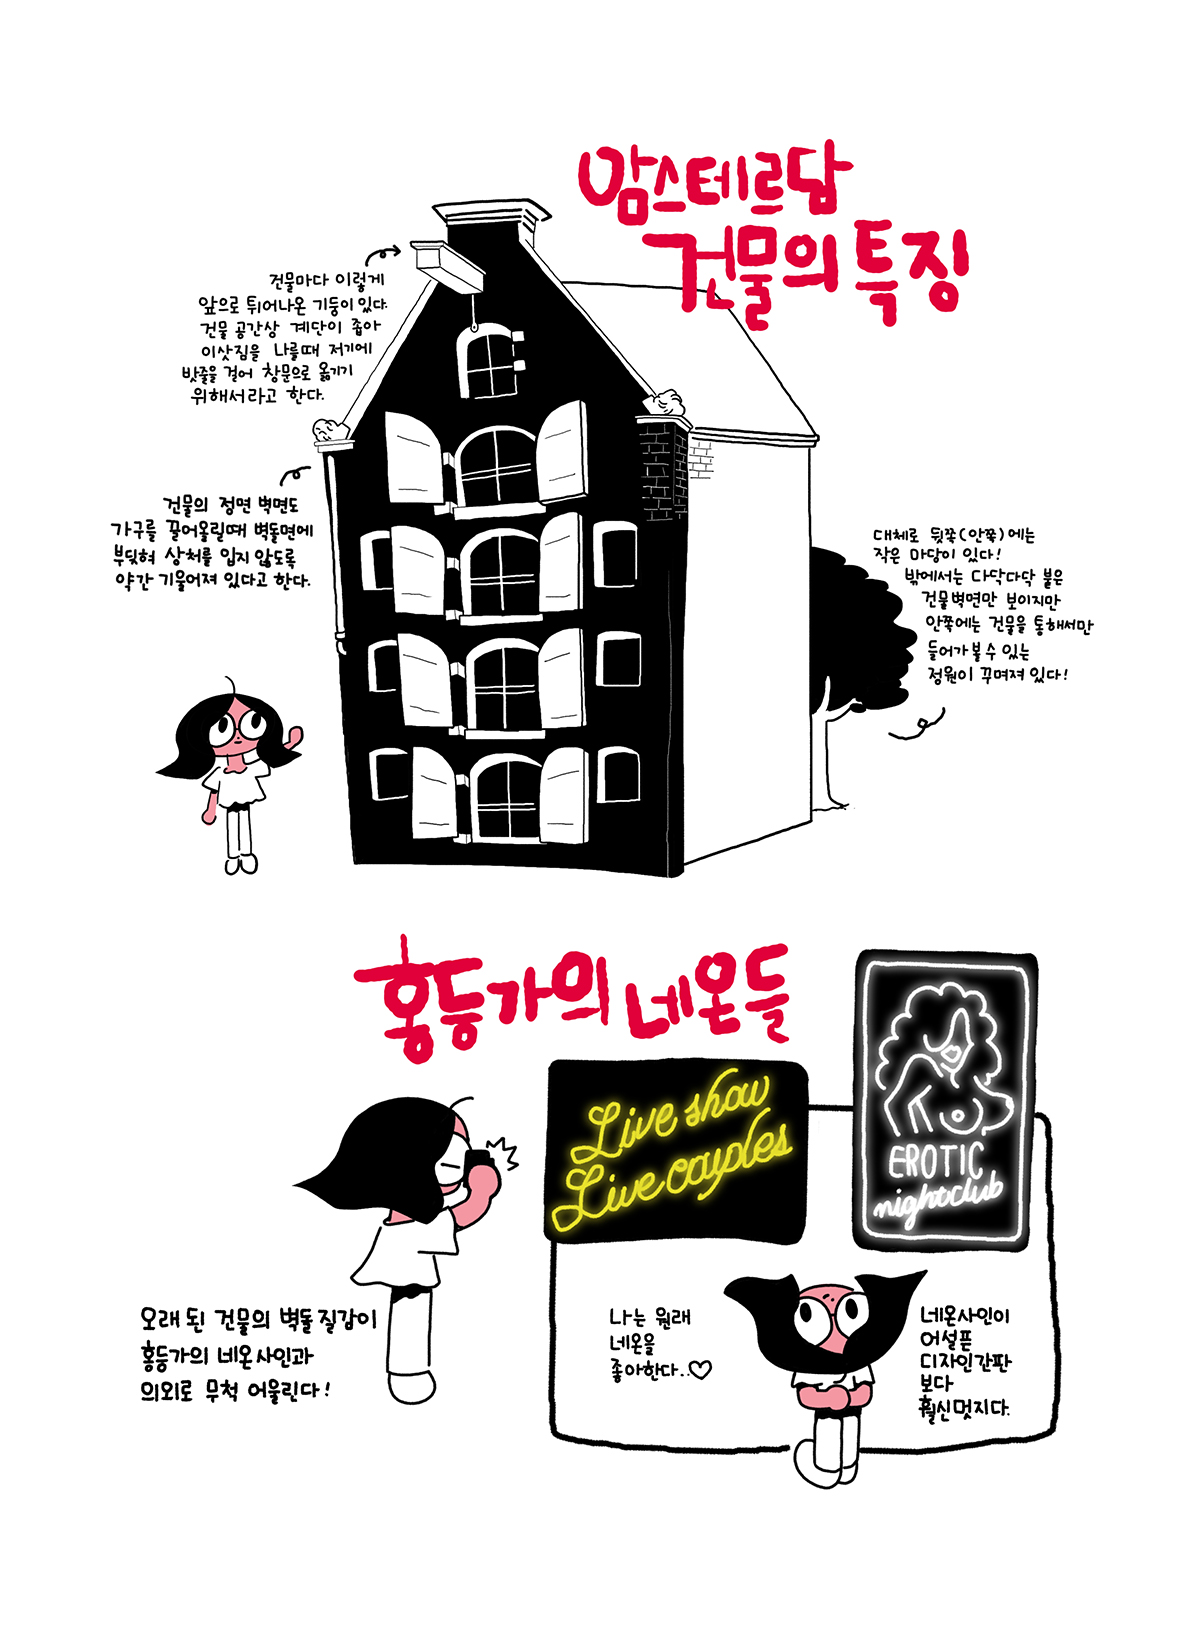 암스테르담
건물의 특징
건물마다 이렇게
앞으로 튀어나온 기둥이 있다.
건물 공간상 계단이 좁아
이삿짐을 나를때 저기에
밧줄을 걸어 창문으로 옮기기
위해서라고 한다.
건물의 정면 벽면도
가구를 끌어올릴때 벽돌면에
부딪혀 상처를 입지 않도록
약간 기울어져 있다고 한다.
대체로 뒷쪽(안쪽)에는
작은 마당이 있다!
밖에서는 다닥다닥 붙은
건물벽면만 보이지만
안쪽에는 건물을 통해서만
들어가볼수 있는
정원이 꾸며져 있다!
홍등가의 네온들
Live show
Live couples
EROTIC
nightclub
오래된 건물의 벽돌질감이
홍등가의 네온사인과
의외로 무척 어울린다!
나는 원래
네온을
좋아한다..♡
네온사인이
어설픈
디자인간판
보다
훨신멋지다.